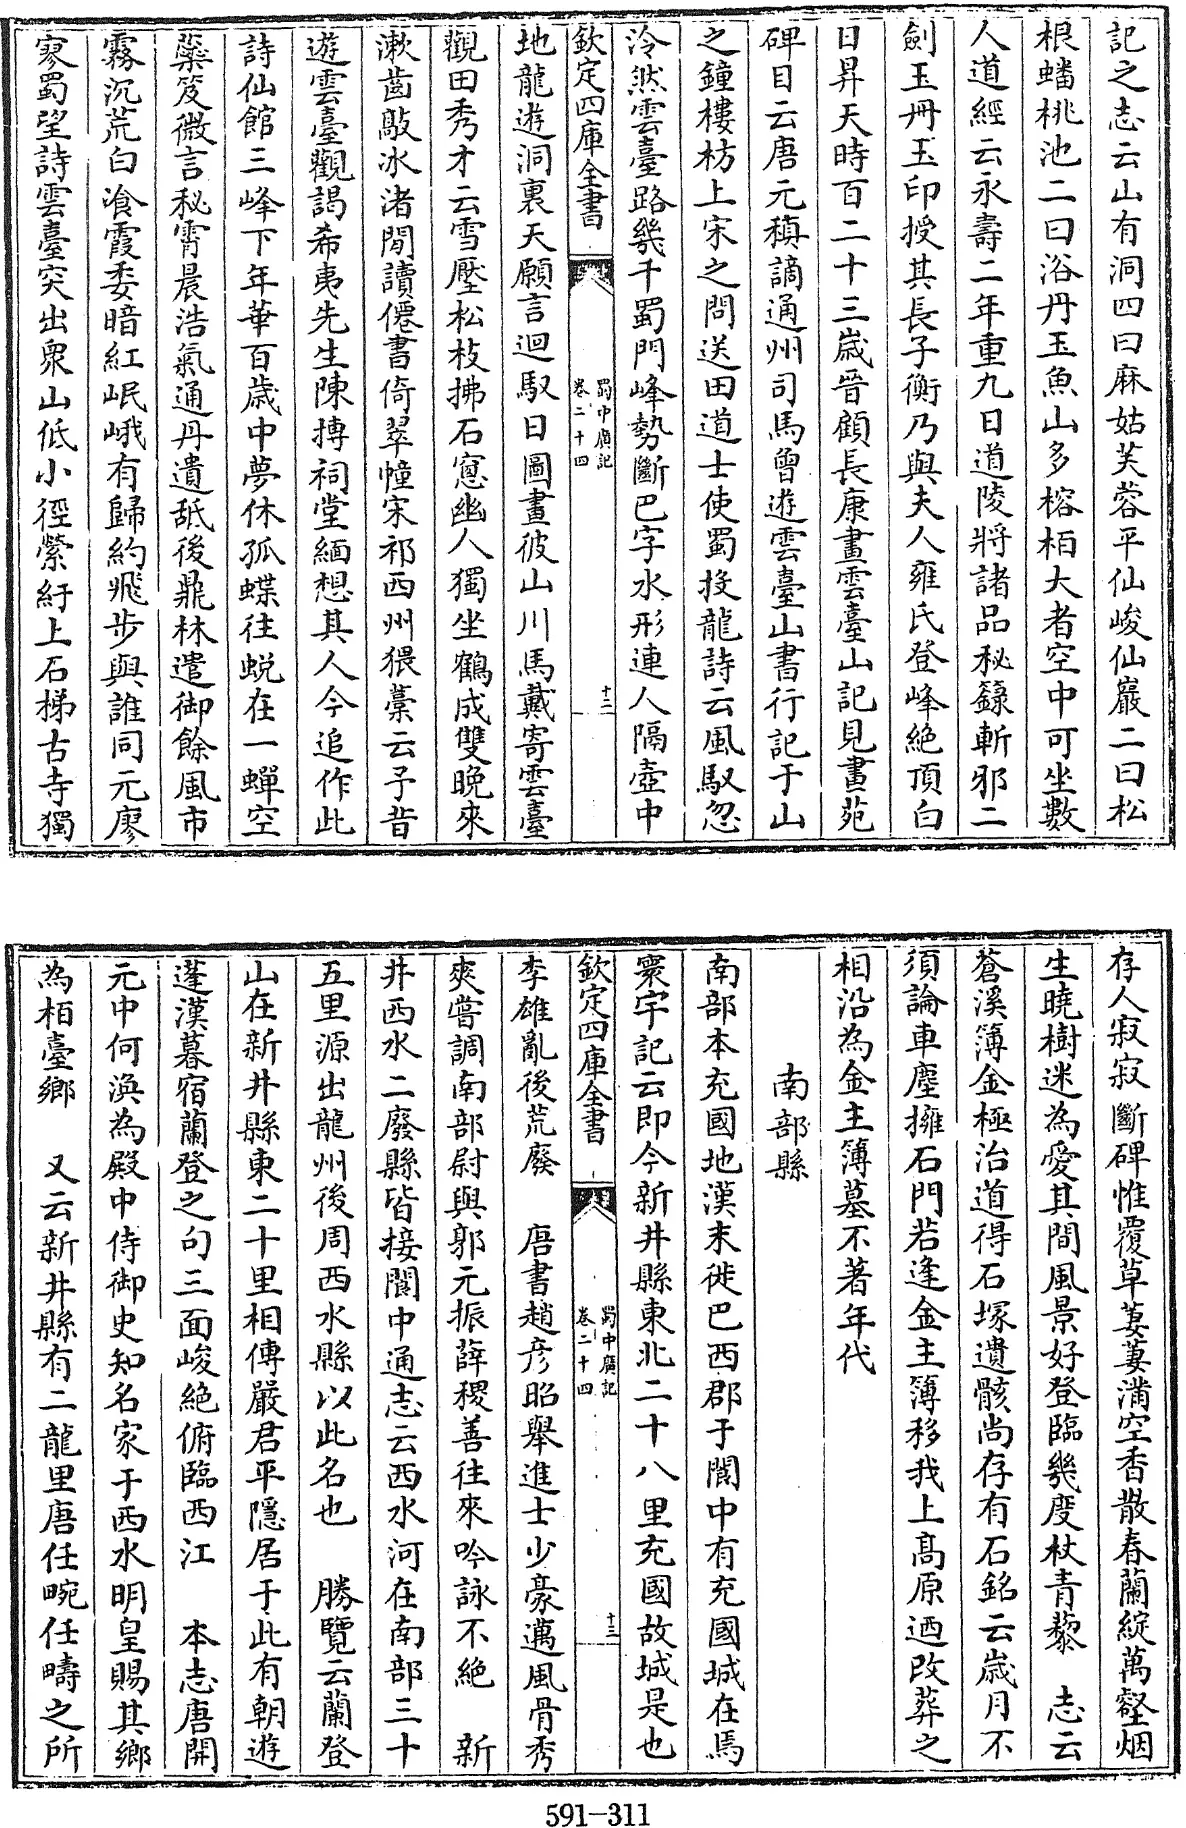 記之志云山有洞四曰麻姑芙蓉平仙峻仙巖二曰松
根蟠桃池二曰浴丹玉魚山多榕柏大者空中可坐數
人道經云永壽二年重九日道陵將諸品秘籙斬邪二
劍玉冊玉印授其長子衡乃與夫人雍氏登峰絶頂白
日昇天時百二十三歲晉顧長康畫雲臺山記見畫苑
碑目云唐元稹謫通州司馬曾遊雲臺山書行記于山
之鐘樓枋上宋之問送田道士使蜀投龍詩云風馭忽
泠然雲臺路幾千蜀門峰勢斷巴字水形連人隔壺中
欽定四庫全書
蜀中廣記
卷二十四
十二
地龍遊洞裏天願言迴馭日圖畫彼山川馬戴寄雲臺
觀田秀才云雪壓松枝拂石窻幽人獨坐鶴成雙晚來
漱齒敲冰渚閒讀僊書倚翠幢宋祁西州猥藁云予昔
遊雲臺觀謁希夷先生陳摶祠堂緬想其人今追作此
詩仙館三峰下年華百歲中夢休孤蝶往蛻在一蟬空
藥笈微言秘霄晨浩氣通丹遺舐後鼎林遣御餘風市
霧沉荒白飡霞委暗紅岷峨有歸約飛步與誰同元廖
寥蜀望詩雲臺突出衆山低小徑縈紆上石梯古寺獨
存人寂寂斷碑惟覆草萋萋滿空香散春蘭綻萬壑烟
生曉樹迷為愛其間風景好登臨幾度杖青藜　志云
蒼溪簿金極治道得石塚遺骸尚存有石銘云歲月不
須論車塵擁石門若逢金主簿移我上高原迺改葬之
相沿為金主簿墓不著年代
南部縣
南部本充國地漢末徙巴西郡于閬中有充國城在焉
寰宇記云即今新井縣東北二十八里充國故城是也
欽定四庫全書
蜀中廣記
卷二十四
十三
李雄亂後荒廢　唐書趙彥昭舉進士少豪邁風骨秀
爽嘗調南部尉與郭元振薛稷善往來吟詠不絶　新
井西水二廢縣皆接閬中通志云西水河在南部三十
五里源出龍州後周西水縣以此名也　勝覽云蘭登
山在新井縣東二十里相傳嚴君平隱居于此有朝遊
蓬漢暮宿蘭登之句三面峻絶俯臨西江　本志唐開
元中何渙為殿中侍御史知名家于西水明皇賜其鄉
為栢臺鄉　又云新井縣有二龍里唐任畹任疇之所
591-311